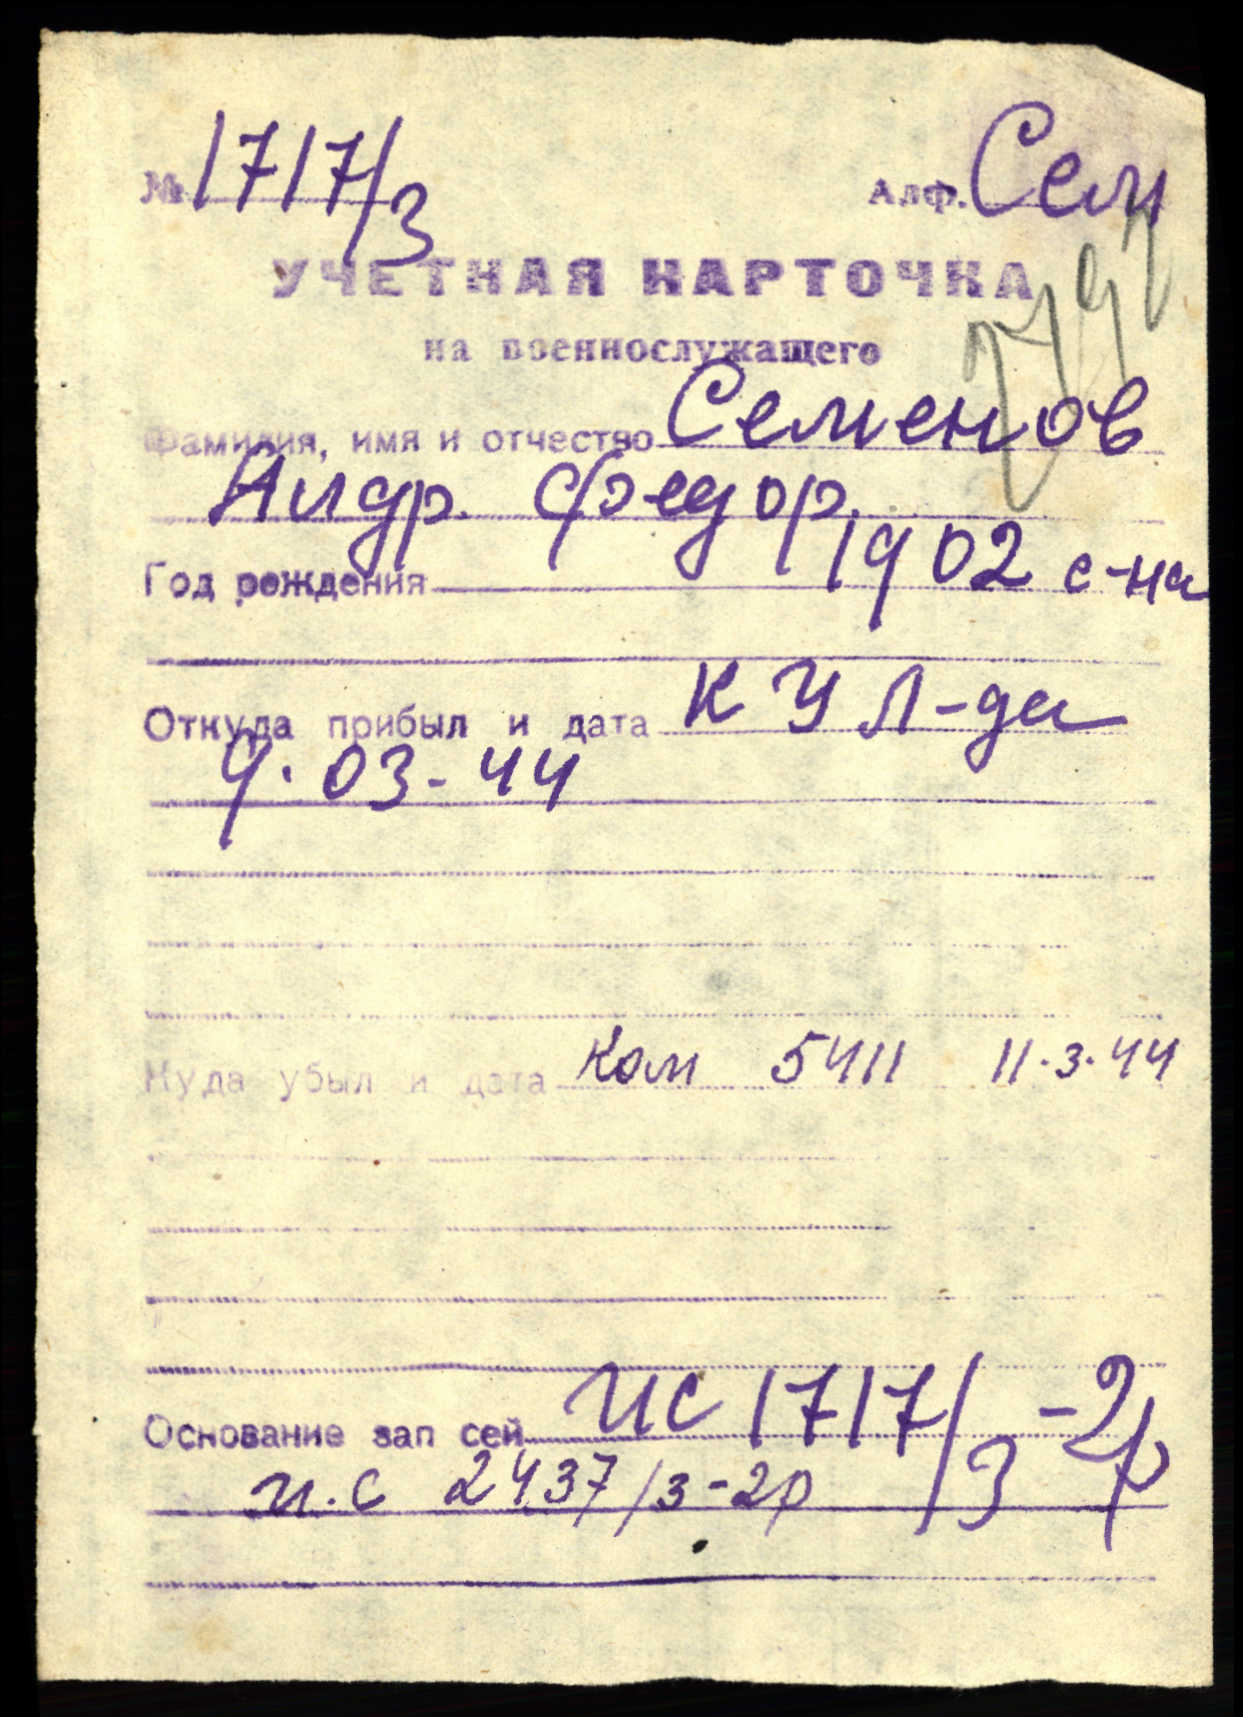 № 1717/3 Алф. Сем
УЧЕТНАЯ КАРТОЧКА
на военнослужащего
Фамилия, имя и отчество Семенов
Андр. Федор.
Год рождения 1902 с-на
Откуда прибыл и дата К У Л-да
9.03-44
Куда убыл и дата Ком 5411 11.3.44
Основание зап сей ис 1717/3-2р
и.с 2437/3-2р